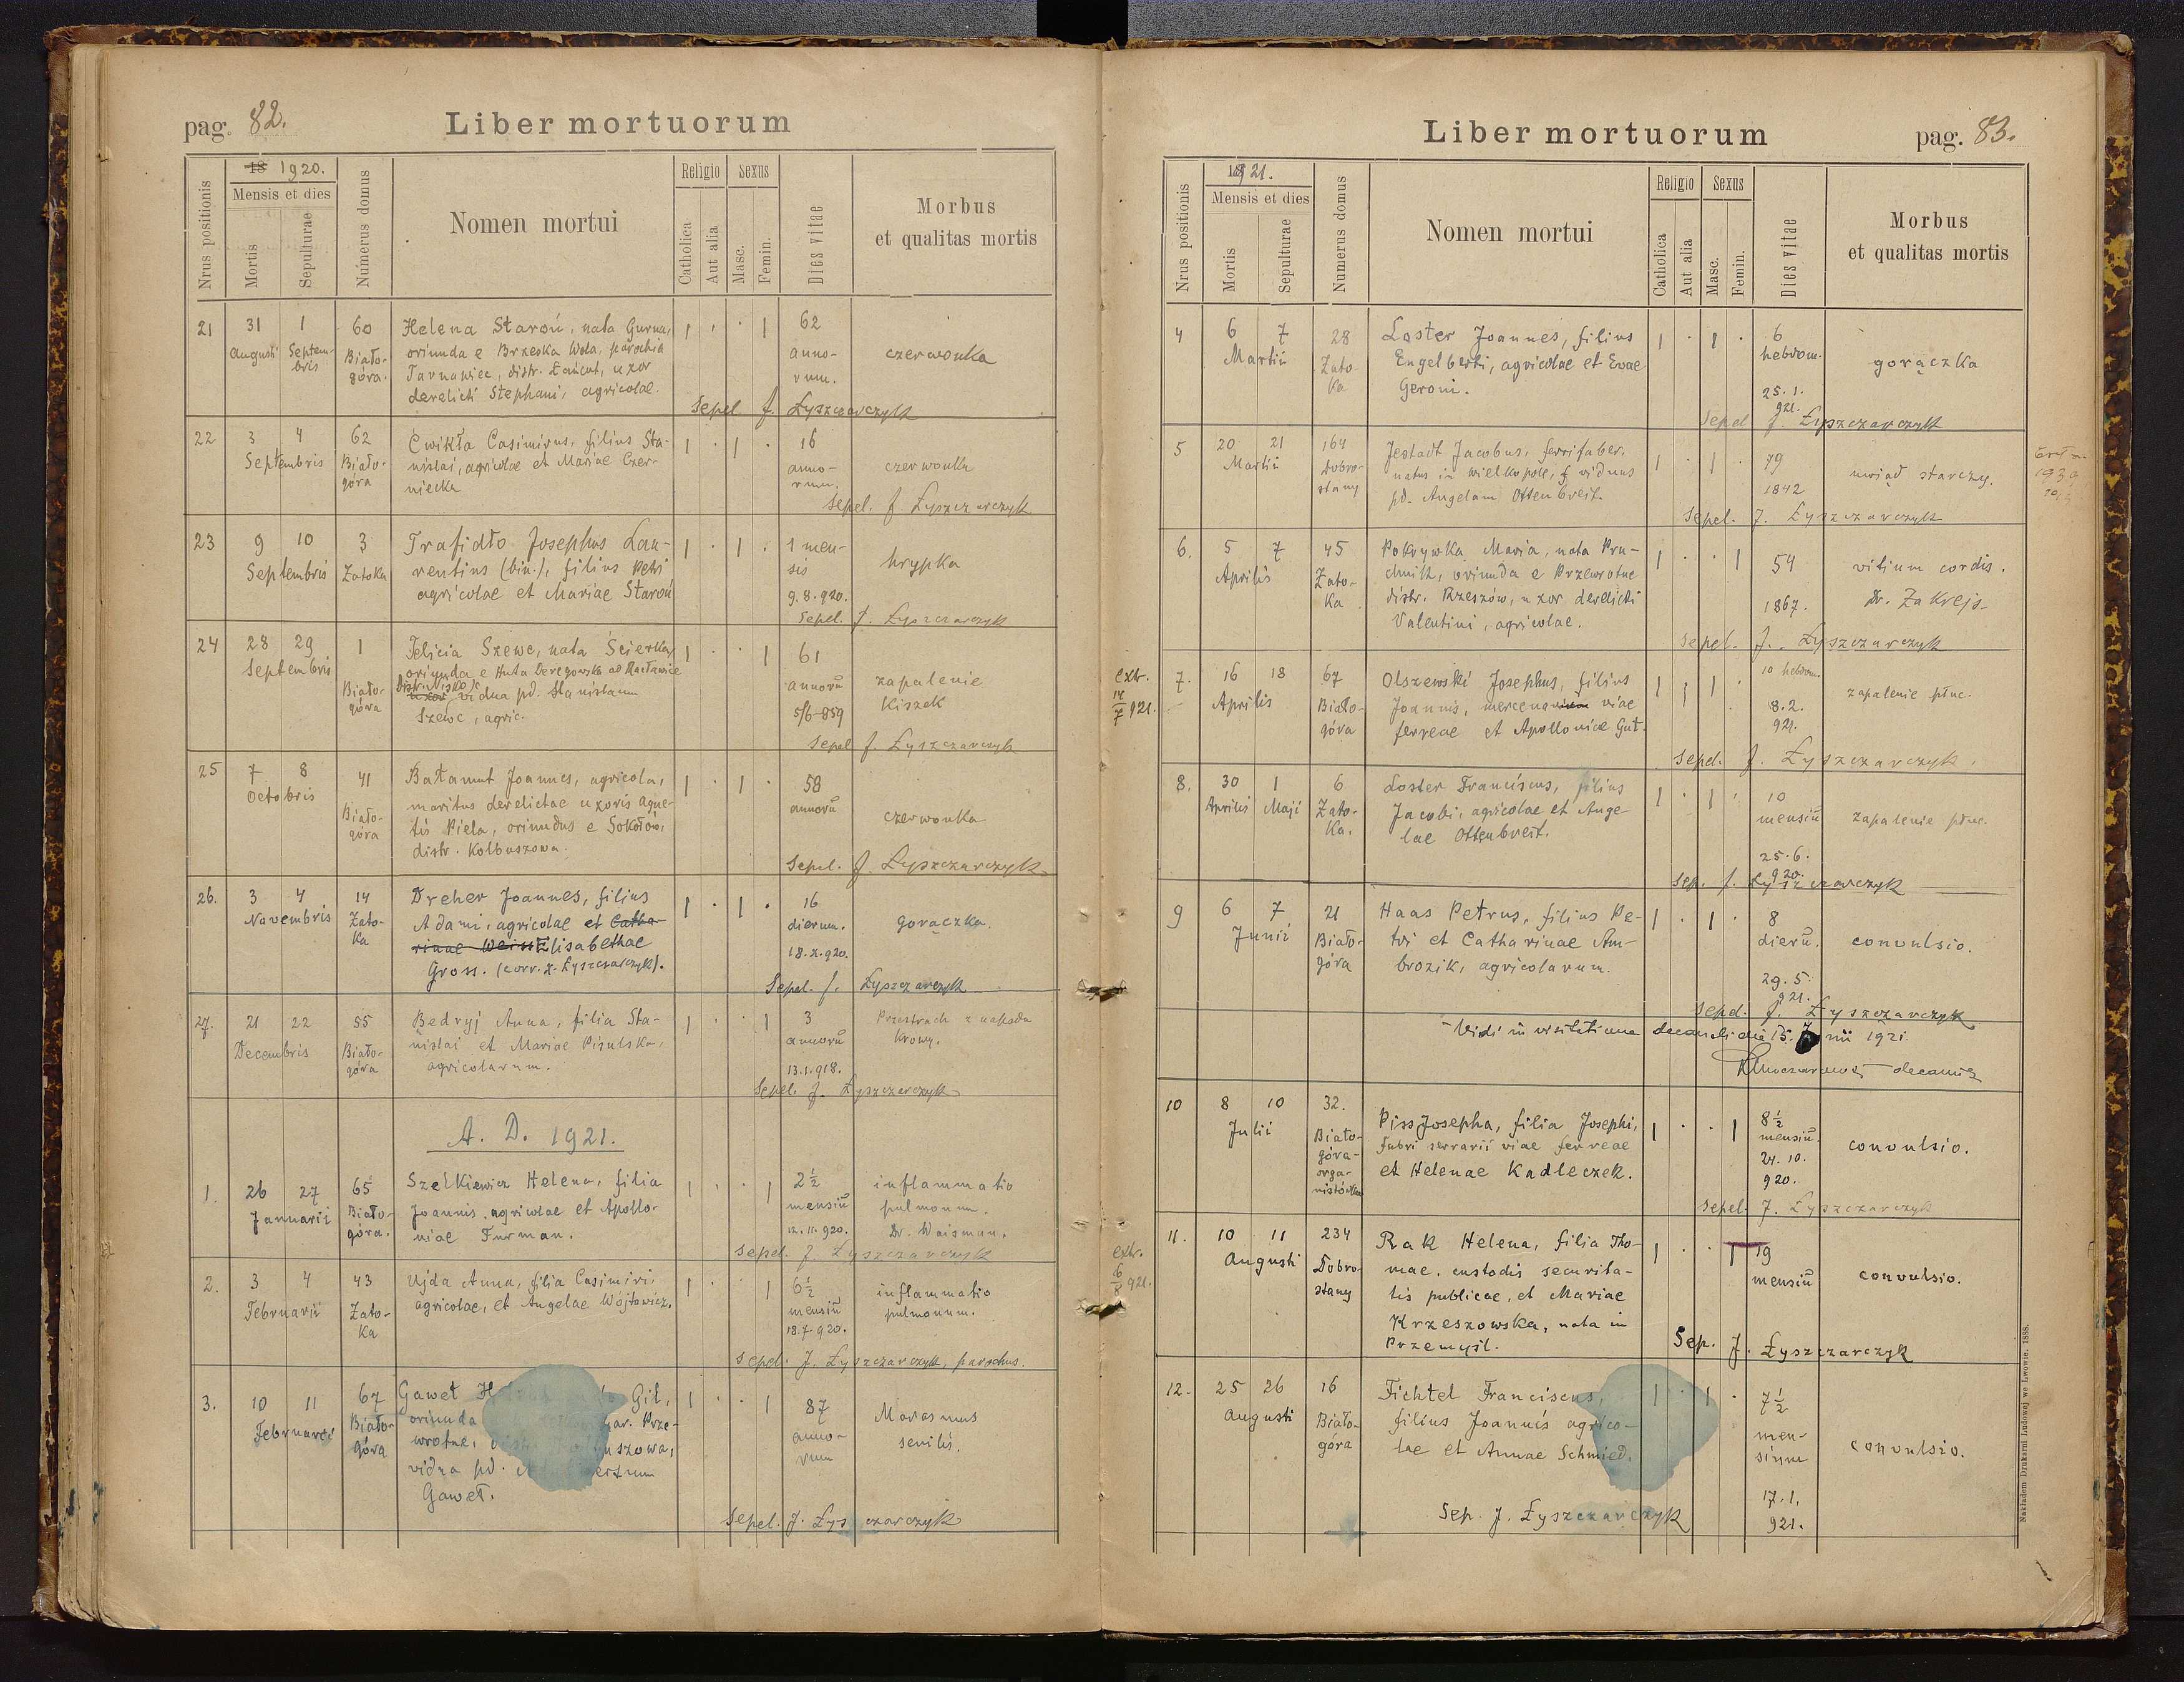 pag. 82.
Liber mortuorum
18 1920.
Nrus positionis
Mensis et dies
Mortis
Sepulturae
Numerus domus
Nomen mortui
Religio
Catholica
Aut alia
Sexus
Masc.
Femin.
Dies vitae
Morbus
et qualitas mortis
21 31 1 60 Helena Staroń, nata Gurna, 1 . . 1 62
Augusti Septem- Biało- oriunda e Brzeska Wola, parochia anno- czerwonka
bris góra. Tarnawiec, distr. Łańcut, uxor rum.
derelicti Stephani, agricolae.
Sepel. J. Łyszczarczyk
22 3 4 62 Ćwikła Casimirus, filius Sta- 1 . 1 . 16
Septembris Biało- nislai, agricolae et Mariae Czer- anno- czerwonka
góra niecka rum.
Sepel. J Łyszczarczyk
23 9 10 3 Trafidło Josephus Lau- 1 . 1 . 1 men-
Septembris Zatoka rentius (bin.), filius Petri sis hrypka
agricolae et Mariae Staroń 9.8.920.
Sepel. J. Łyszczarczyk
24 28 29 1 Felicia Szewc, nata Ścierka, 1 . . 1 61
Septembris oriunda e Huta Deregowska ad Racławice
Biało- distr. Nisko, uxor vidua pd. Stanislaum annorū zapalenie
góra Szewc, agric. 5/6-859 kiszek
Sepel J. Łyszczarczyk
25 7 8 41 Bałamut Joannes, agricola, 1 . 1 . 58
Octobris maritus derelictae uxoris Agne- annorū
Biało- tis Piela, oriundus e Sokołów, czerwonka
góra distr. Kolbuszowa.
Sepel. J Łyszczarczyk
26. 3 4 14 Dreher Joannes, filius 1 . 1 . 16
Novembris Zato- Adami, agricolae et Catha- dierum. gorączka.
ka rinae Weiss Elisabethae 18.X.920.
Gross. (corr. X. Łyszczarczyk).
Sepel. J. Łyszczarczyk
27. 21 22 55 Bedryj Anna, filia Sta- 1 . . 1 3 Przestrach z napadu
Decembris Biało- nislai et Mariae Pisulska, annorū krowy.
góra agricolarum. 13.1.918.
Sepel. J. Łyszczarczyk
A. D. 1921.
1. 26 27 65 Szelkiewicz Helena, filia 1 . . 1 2½ inflammatio
Januarii Biało- Joannis, agricolae et Apollo- mensiū pulmonum.
góra. niae Furman. 12.11.920. Dr. Waisman.
Sepel. J Łyszczarczyk
2. 3 4 43 Ujda Anna, filia Casimiri, 1 . . 1 6½ inflammatio
Februarii Zato- agricolae, et Angelae Wójtowicz. mensiū pulmonum.
ka 18.7.920.
Sepel. J. Łyszczarczyk, parochus.
3. 10 11 67 Gaweł Git, 1 . . 1 87 Marasmus
Februarii Biało- oriunda par. Prze- anno- senilis.
góra wrotne, uszowa, rum
vidua pd.
Gaweł.
Sepel. J. Łyszczarczyk
Liber mortuorum
pag. 83.
1921.
Nrus positionis
Mensis et dies
Mortis
Sepulturae
Numerus domus
Nomen mortui
Religio
Catholica
Aut alia
Sexus
Masc.
Femin.
Dies vitae
Morbus
et qualitas mortis
4 6 7 28 Loster Joannes, filius 1 . 1 . 6
Martii Zato- Engelberti, agricolae et Evae hebdom. gorączka
ka Geroni. 25.1.
921.
Sepel J. Łyszczarczyk
5 20 21 164 Jestadt Jacobus, ferrifaber, 1 . 1 . 79
Martii Dobro- natus in Wielkopole, viduus uwiąd starczy.
stany pd. Angelam Ottenbreit. 1842
Sepel. J. Łyszczarczyk
6. 5 7 45 Pokrywka Maria, nata Pru- 1 . . 1 54 vitium cordis.
Aprilis Zato- chnik, oriunda e Przewrotne
ka distr. Rzeszów, uxor derelicti 1867. Dr. Zakrejs
Valentini, agricolae.
Sepel. J. Łyszczarczyk
extr.
14/7 921.
7. 16 18 67 Olszewski Josephus, filius 1 . 1 . 10 hebdom.
Aprilis Biało- Joannis, mercenarium viae 8.2. zapalenie płuc.
góra ferreae et Apolloniae Gut. 921.
Sepel. J. Łyszczarczyk.
8. 30 1 6 Loster Franciscus, filius 1 . 1 . 10
Aprilis Maji Zato- Jacobi, agricolae et Ange- mensiū zapalenie płuc.
ka. lae Ottenbreit. 25.6.
920.
Sep. J. Łyszczarczyk
9 6 7 21 Haas Petrus, filius Pe- 1 . 1 . 8
Junii Biało- tri et Catharinae Am- dierū. convulsio.
góra brozik, agricolarum. 29.5.
921.
Sepel. J. Łyszczarczyk
Vidi in visitatione decanali die 15. Junii 1921.
decanus
10 8 10 32. Piss Josepha, filia Josephi, 1 . . 1 8½
Julii Biało- fabri serrarii viae ferreae mensiū. convulsio.
góra- et Helenae Kadleczek. 24.10.
orga- 920.
nistówka
Sepel. J. Łyszczarczyk
extr.
6/8 921.
11. 10 11 234 Rak Helena, filia Tho- 1 . . 1 19
Augusti Dobro- mae, custodis securita- mensiū convulsio.
stany tis publicae, et Mariae
Krzeszowska, nata in
Przemyśl.
Sep. J. Łyszczarczyk
12. 25 26 16 Fichtel Franciscus, 1 . 1 . 7½
Augusti Biało- filius Joannis agrico- men-
góra lae et Annae Schmied. sium convulsio.
17.1.
921.
Sep. J. Łyszczarczyk
Nakładem Drukarni Ludowej we Lwowie. 1888.